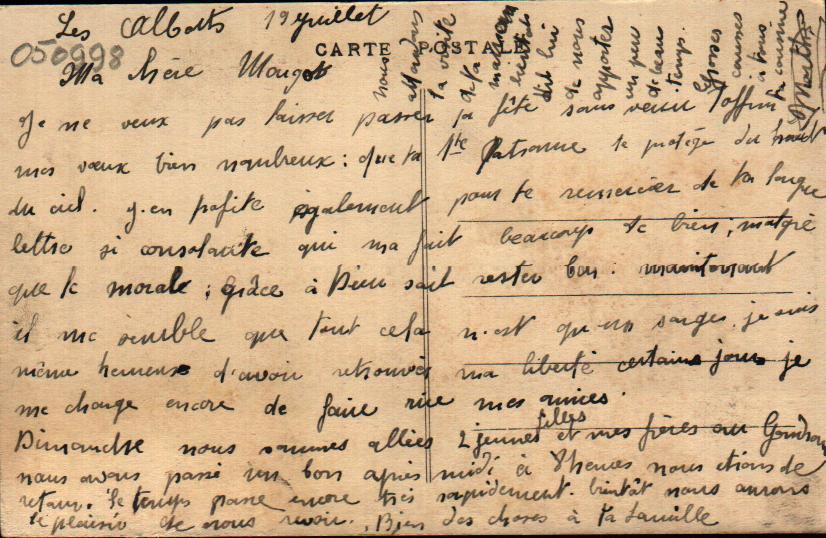 Les Albatts 19 juillet
050998
CARTE POSTALE
Ma chère Margot
Je ne veux pas laisser passer ta fête sans venir t'offrir
mes vœux bien nombreux : que ta Ste Patronne te protège du haut
du ciel. J'en pofite également pour te remercier de ta longue
lettre si consolante qui ma fait beaucoup de bien ; malgré
que le morale ; grâce à Dieu soit rester bon : maintenant
il me semble que tout cela n'est qu'un songe. je suis
même heureuse d'avoir retrouvés ma liberté certains jours je
me charge encore de faire rire mes amies.
Dimanche nous sommes allées 2 jeunes filles et mes frères au
nous avons passé un bon après midi à 8 heures nous étions de
retour. le temps passe encore très rapidement. bientôt nous aurons
le plaisir de vous revoir. Bien des choses à ta famille
nous
attendons
ta visite
de ta
maman
bientôt
dit lui
de nous
apporter
un peu
de beau
temps.
Grosses
à tous